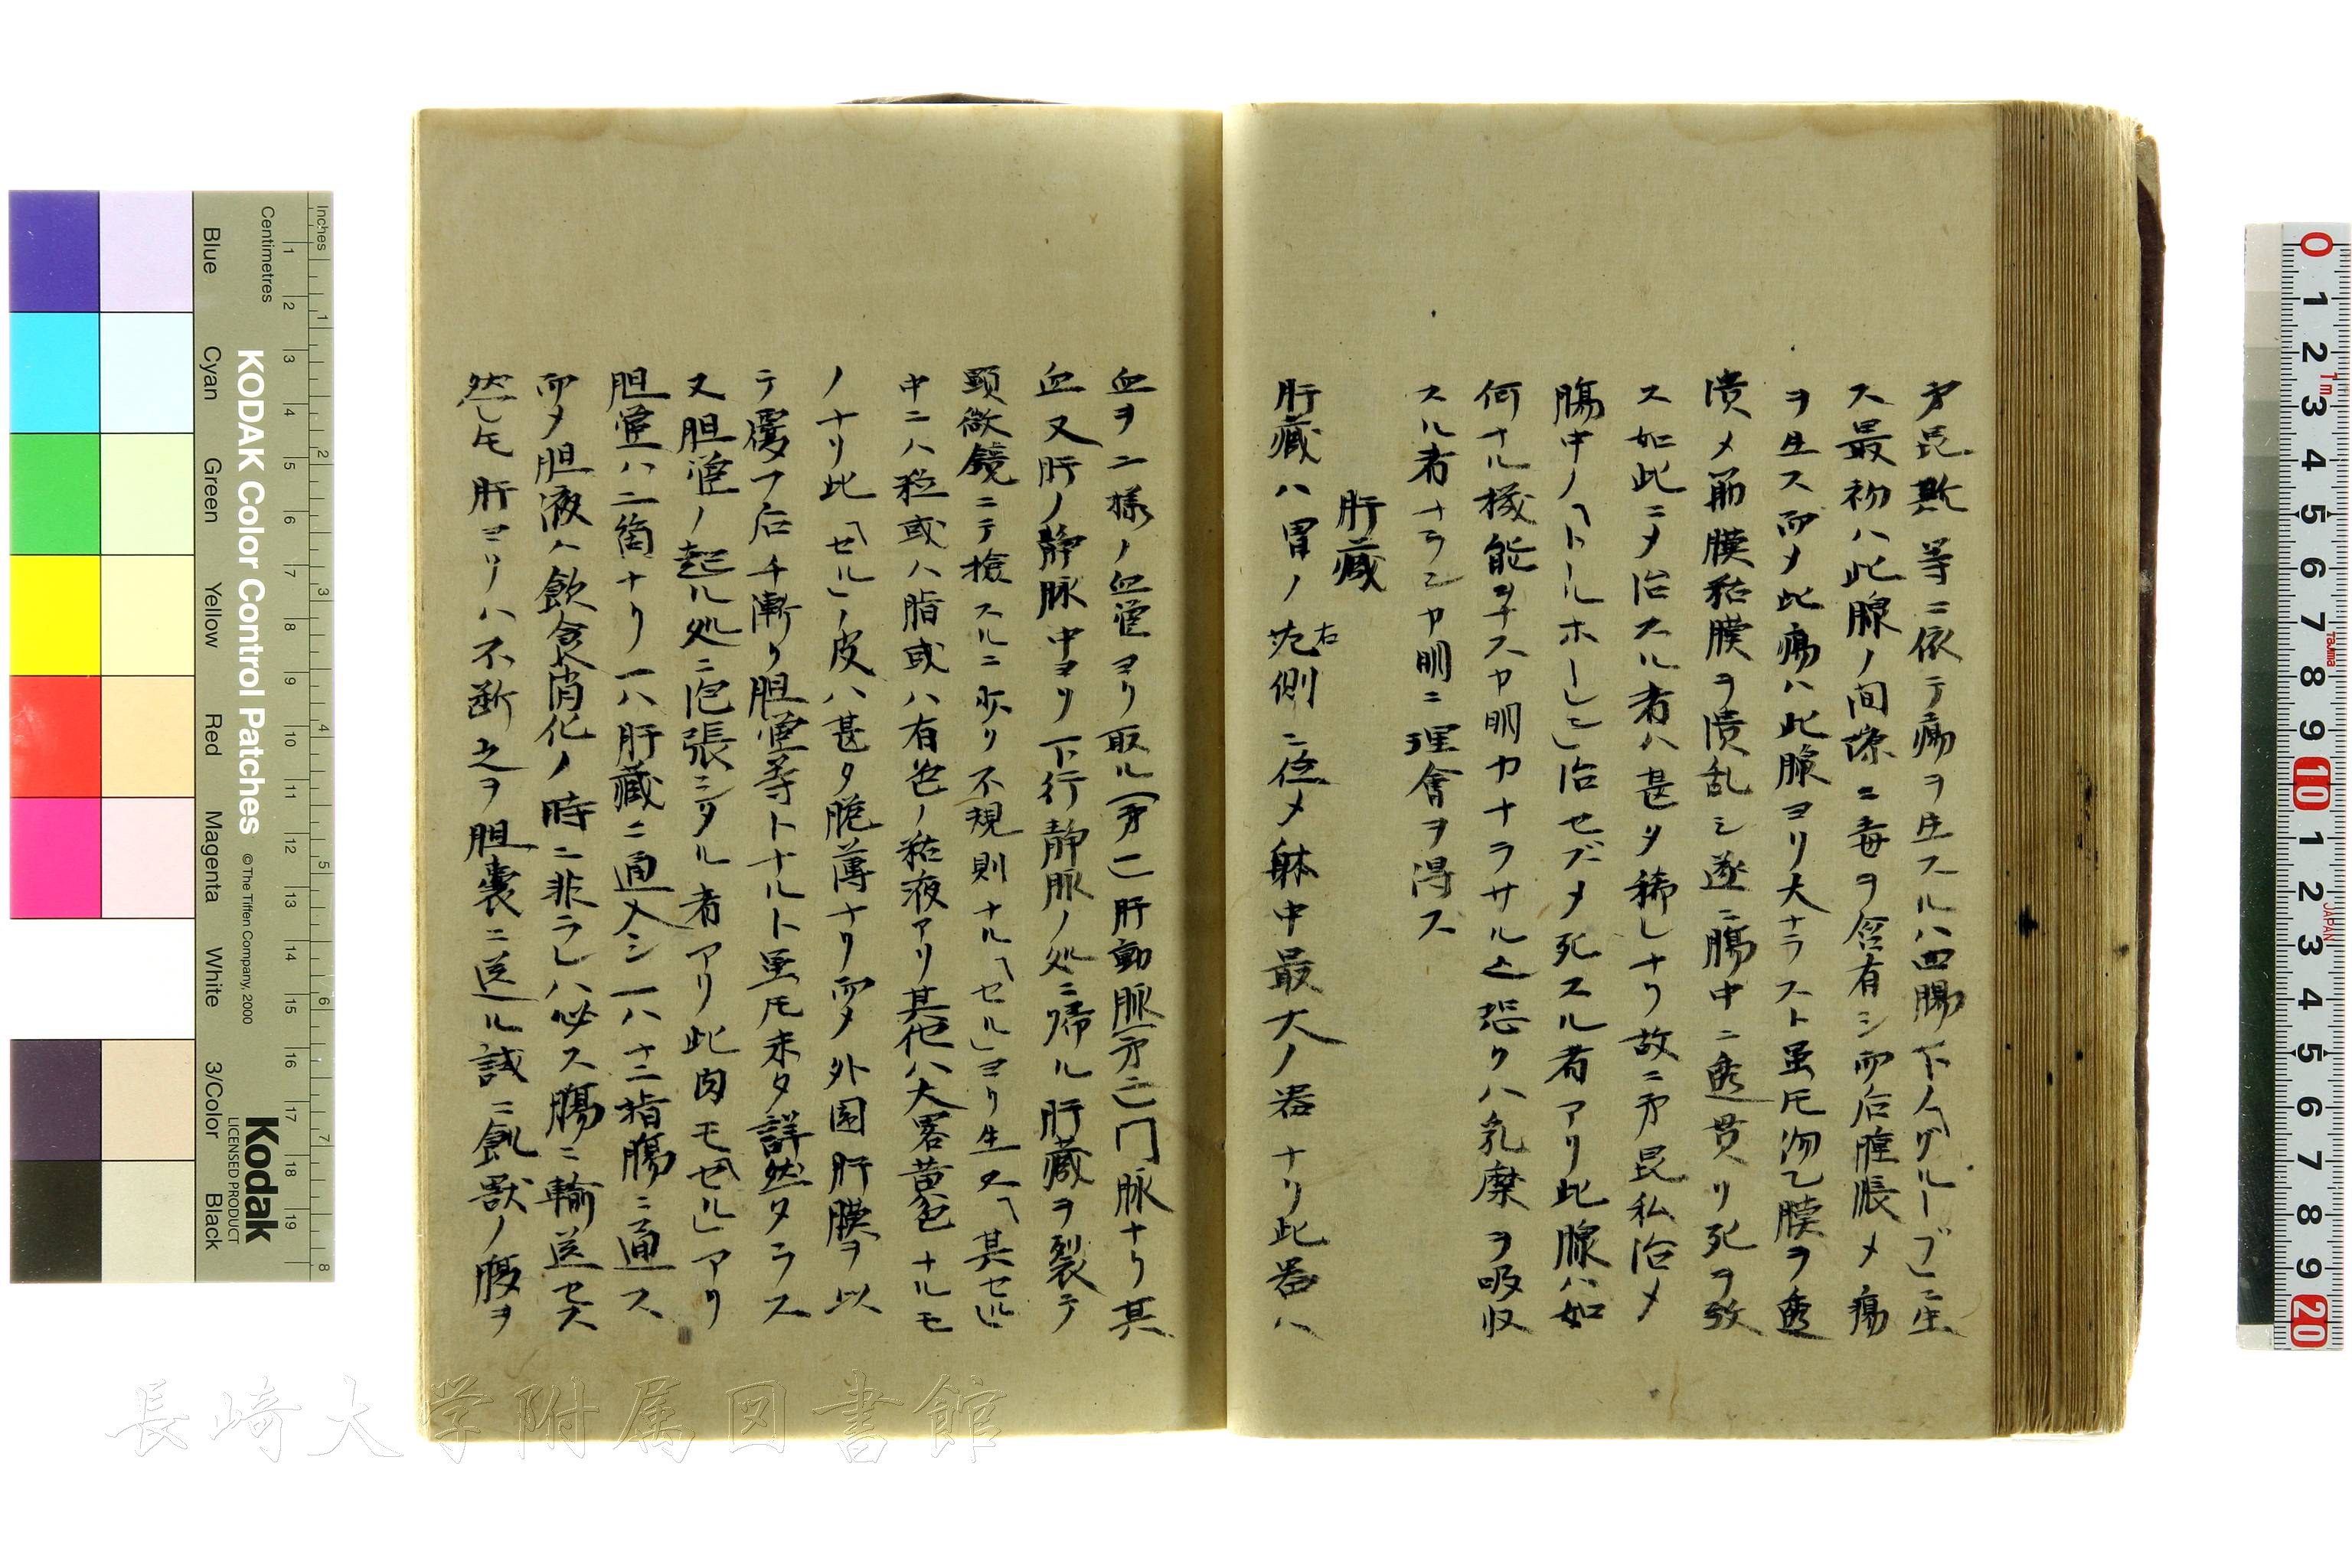 㐧昆斯等ニ依テ瘍ヲ生スルハ四腸下ノ「グルーブ」ニ生
ス最初ハ此腺ノ間隙ニ毒ヲ含有シ而后腫脹〆瘍
ヲ生ス而〆此瘍ハ此腺ヨリ大ナラスト虽𪜈沕乙膜ヲ透
潰〆筋膜粘膜ヲ潰乱シ遂ニ腸中ニ透貫リ死ヲ致
ス如此ニ〆治スル者ハ甚タ稀レナリ故ニ㐧昆私治〆
腸中ノ「トールホーレン」治セズ〆死スル者アリ此腺ハ如
何ナル機能ヲナスヤ明カナラサル𪜈恐クハ乳糜ヲ吸収
スル者ナランヤ明ニ理會ヲ得ス
肝藏
肝藏ハ胃ノ右側ニ位〆躰中最大ノ器ナリ此器ハ
血ヲ二様ノ血管ヨリ取ル㐧一肝動脈㐧二門脈ナリ其
血又肝ノ静脉中ヨリ下行静脈ノ処ニ帰ル肝藏ヲ裂テ
顕微鏡ニテ撿スルニ亦リ不規則ナル「セル」ヨリ生ス「其セル」
中ニハ粒或ハ脂或ハ有色ノ粘液アリ其他ハ大畧黄色ナルモ
ノナリ此「セル」ノ皮ハ甚タ脆薄ナリ而〆外圍肝膜ヲ以
テ覆フ后チ漸ク胆管等トナルト虽𪜈未タ詳然タラス
又胆管ノ起ル処ニ泡張シタル者アリ此内モ「セル」アリ
胆管ハ二箇ナリ一ハ肝藏ニ通入シ一ハ十二指腸ニ通ス
而〆胆液ハ飲食消化ノ時ニ非ラレハ必ス腸ニ輸送セス
然レ𪜈肝ヨリハ不断之ヲ胆嚢ニ送ル試ニ飢獣ノ腹ヲ
KODAK Color Control Patches
© The Tiffen Company, 2000
Kodak
LICENSED PRODUCT
Inches
Centimetres
Blue
Cyan
Green
Yellow
Red
Magenta
White
3/Color
Black
長崎大学附属図書館